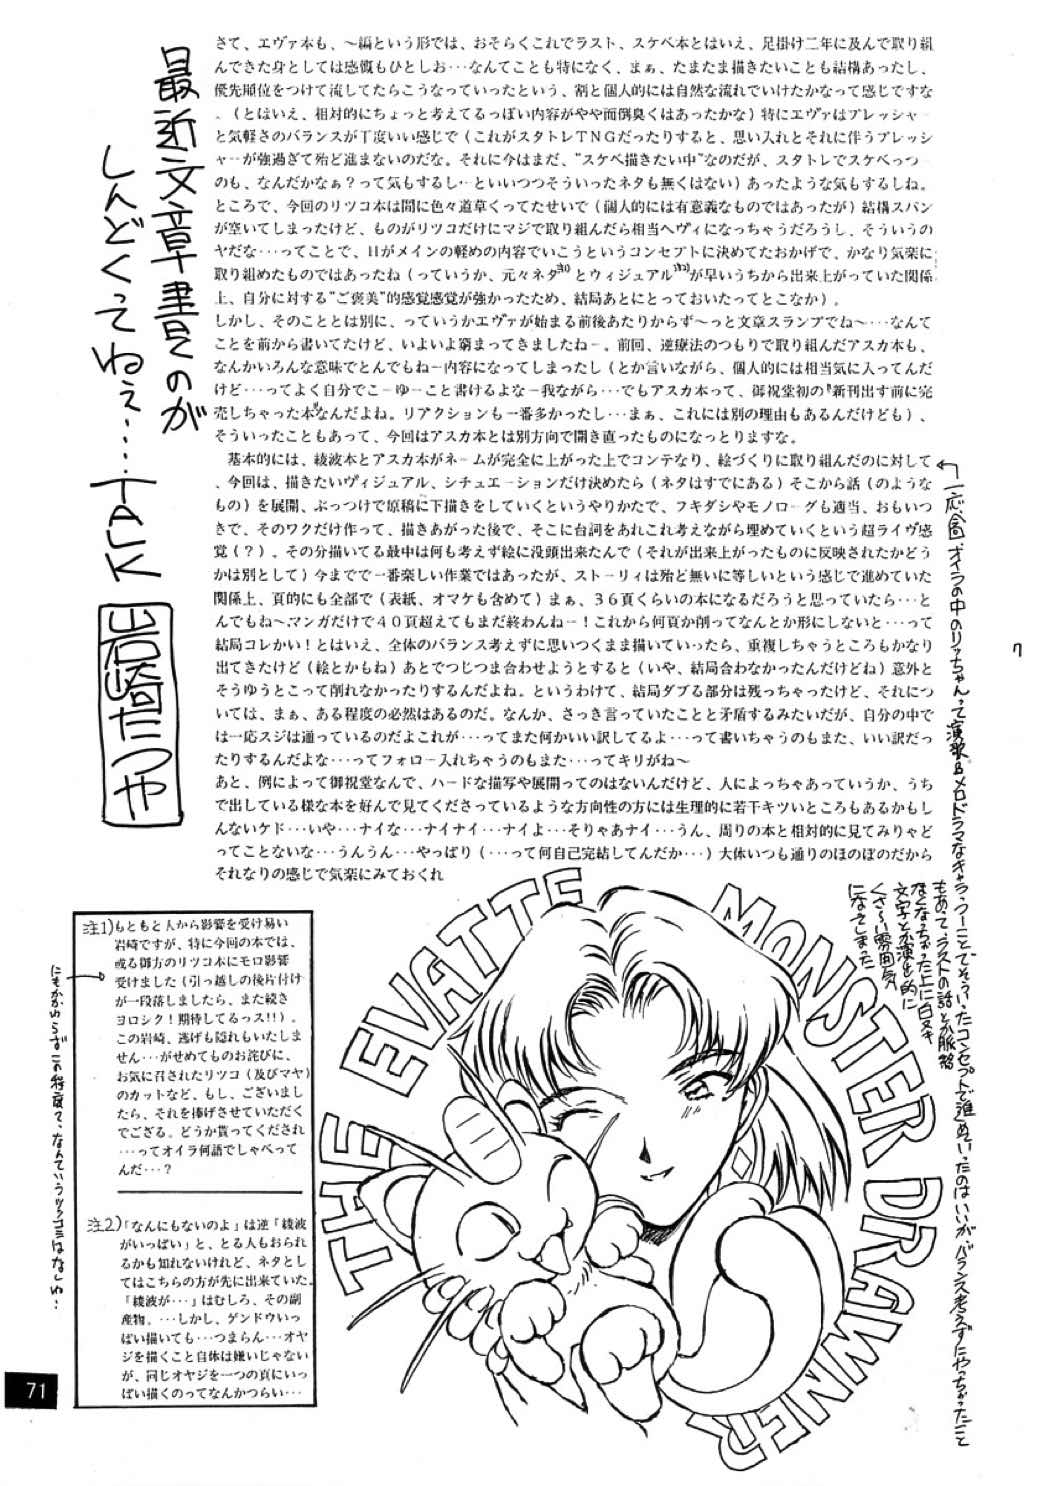 最近文章書くのが
しんどくってねぇ…TALK
岩崎たつや
さて、エヴァ本も、〜編という形では、おそらくこれでラスト、スケベ本とはいえ、足掛け二年に及んで取り組
んできた身としては感慨もひとしお…なんてことも特になく、まぁ、たまたま描きたいことも結構あったし、
優先順位をつけて流してたらこうなっていったという、割と個人的には自然な流れでいけたかなって感じですな
。（とはいえ、相対的にちょっと考えてるっぽい内容がやや面倒臭くはあったかな）特にエヴァはプレッシャー
と気軽さのバランスが丁度いい感じで（これがスタトレTNGだったりすると、思い入れとそれに伴うプレッシ
ャーが強過ぎて殆ど進まないのだな。それに今はまだ、“スケベ描きたい中”なのだが、スタトレでスケベっつー
のも、なんだかなぁ？って気もするし…といいつつそういったネタも無くはない）あったような気もするしね。
ところで、今回のリツコ本は間に色々道草くってたせいで（個人的には有意義なものではあったが）結構スパン
が空いてしまったけど、ものがリツコだけにマジで取り組んだら相当ヘヴィになっちゃうだろうし、そういうの
ヤだな…ってことで、Hがメインの軽めの内容でいこうというコンセプトに決めてたおかげで、かなり気楽に
取り組めたものではあったね（っていうか、元々ネタ注1)とヴィジュアル注2)が早いうちから出来上がっていた関係
上、自分に対する“ご褒美”的感覚感覚が強かったため、結局あとにとっておいたってとこなか）。
しかし、そのこととは別に、っていうかエヴァが始まる前後あたりからず〜っと文章スランプでね〜…なんて
ことを前から書いてたけど、いよいよ窮まってきましたねー。前回、逆療法のつもりで取り組んだアスカ本も、
なんかいろんな意味でとんでもねー内容になってしまったし（とか言いながら、個人的には相当気に入ってんだ
けど…ってよく自分でこーゆーこと書けるよなー我ながら…でもアスカ本って、御祝堂初の『新刊出す前に完
売しちゃった本』なんだよね。リアクションも一番多かったし…まぁ、これには別の理由もあるんだけども）、
そういったこともあって、今回はアスカ本とは別方向で開き直ったものになっとりますな。
基本的には、綾波本とアスカ本がネームが完全に上がった上でコンテなり、絵づくりに取り組んだのに対して
、今回は、描きたいヴィジュアル、シチュエーションだけ決めたら（ネタはすでにある）そこから話（のような
もの）を展開、ぶっつけで原稿に下描きをしていくというやりかたで、フキダシやモノローグも適当、おもいつ
きで、そのワクだけ作って、描きあがった後で、そこに台詞をあれこれ考えながら埋めていくという超ライヴ感
覚（？）。その分描いてる最中は何も考えず絵に没頭出来たんで（それが出来上がったものに反映されたかどう
かは別として）今までで一番楽しい作業ではあったが、ストーリィは殆ど無いに等しいという感じで進めていた
関係上、頁的にも全部で（表紙、オマケも含めて）まぁ、３６頁くらいの本になるだろうと思っていたら…と
んでもね〜マンガだけで４０頁超えてもまだ終わんねー！これから何頁か削ってなんとか形にしないと…って
結局コレかい！とはいえ、全体のバランス考えずに思いつくまま描いていったら、重複しちゃうところもかなり
出てきたけど（絵とかもね）あとでつじつま合わせようとすると（いや、結局合わなかったんだけどね）意外と
そうゆうとこって削れなかったりするんだよね。というわけて、結局ダブる部分は残っちゃったけど、それにつ
いては、まぁ、ある程度の必然はあるのだ。なんか、さっき言っていたことと矛盾するみたいだが、自分の中で
は一応スジは通っているのだよこれが…ってまた何かいい訳してるよ…って書いちゃうのもまた、いい訳だっ
たりするんだよな…ってフォロー入れちゃうのもまた…ってキリがね〜
あと、例によって御祝堂なんで、ハードな描写や展開ってのはないんだけど、人によっちゃあっていうか、うち
で出している様な本を好んで見てくださっているような方向性の方には生理的に若干キツいところもあるかもし
んないケド…いや…ナイな…ナイナイ…ナイよ…そりゃあナイ…うん、周りの本と相対的に見てみりゃど
ってことないな…うんうん…やっぱり（…って何自己完結してんだか…）大体いつも通りのほのぼのだから
それなりの感じで気楽にみておくれ
一応今回、オイラの中のリッちゃんって演歌&メロドラマなキャラっつーことでそういったコンセプトで進めていったのはいいが、バランス考えずにやっちゃったこと
もあって、ラストの話とか脈絡
なくなっちゃった上に白ヌキ
文字とか演出的に
くさ〜い雰囲気
になってしまった
注1)もともと人から影響を受け易い
岩崎ですが、特に今回の本では、
或る御方のリツコ本にモロ影響
受けました（引っ越しの後片付け
が一段落しましたら、また続き
ヨロシク！期待してるっス!!）。
この岩崎、逃げも隠れもいたしま
せん…がせめてものお詫びに、
お気に召されたリツコ（及びマヤ）
のカットなど、もし、ございまし
たら、それを捧げさせていただく
でござる。どうか貰ってくだされ
…ってオイラ何語でしゃべって
んだ…？
にもかかわらずこの程度て、なんていうツッコミはなしね…
注2)「なんにもないのよ」は逆「綾波
がいっぱい」と、とる人もおられ
るかも知れないけれど、ネタとし
てはこちらの方が先に出来ていた。
「綾波が…」はむしろ、その副
産物。…しかし、ゲンドウいっ
ぱい描いても…つまらん…オヤ
ジを描くこと自体は嫌いじゃない
が、同じオヤジを一つの頁にいっ
ぱい描くのってなんかつらい…
THE EVATTE MONSTER DRAWNER
71